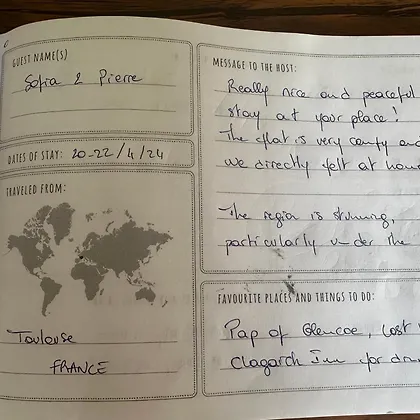 GUEST NAME(S)
Sofia & Pierre
DATES OF STAY: 20-22/4/24
TRAVELED FROM:
Toulouse
FRANCE
MESSAGE TO THE HOST:
Really nice and peaceful
stay at your place!
The flat is very comfy and
we directly felt at home
The region is stunning,
particularly under the
FAVOURITE PLACES AND THINGS TO DO:
Pap of Glencoe, Lost
Clagarch Inn for